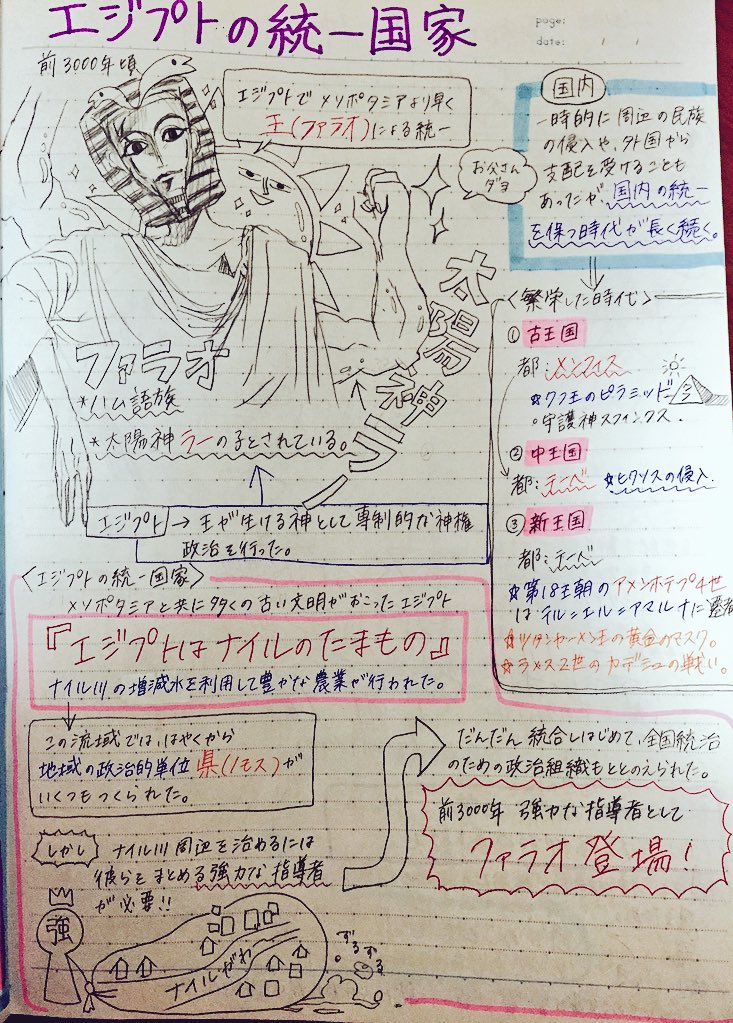 エジプトの統一国家
page:
date: / /
前3000年頃
エジプトで メソポタミアより早く
王(ファラオ)による統一
お父さん
ダヨ
太陽神ラー
ファラオ
*ハム語族
*太陽神ラーの子とされている。
エジプト→王が生ける神として専制的な神権
政治を行った。
国内
一時的に周辺の民族
の侵入や、外国から
支配を受けることも
あったが国内の統一
を保つ時代が長く続く。
<繁栄した時代>
①古王国
都:メンフィス
☆クフ王のピラミッド
○守護神スフィンクス.
②中王国
都:テーベ ☆ヒクソスの侵入
③新王国
都:テーベ
☆第18王朝のアメンホテプ4世
はテル=エル=アマルナに遷都
☆ツタンカーメン王の黄金のマスク。
☆ラメス2世のカデシュの戦い。
<エジプトの統一国家>
メソポタミアと共に多くの古い文明がおこったエジプト
『エジプトはナイルのたまもの』
ナイル川の増減水を利用して豊かな農業が行われた。
この流域では、はやくから
地域の政治的単位 県(ノモス)が
いくつもつくられた。
しかし ナイル川周辺を治めるには
彼らをまとめる強力な指導者
が必要!!
強
ナイルがわ
ずるずる
だんだん統合しはじめて、全国統治
のための政治組織もととのえられた。
前3000年 強力な指導者として
ファラオ登場!